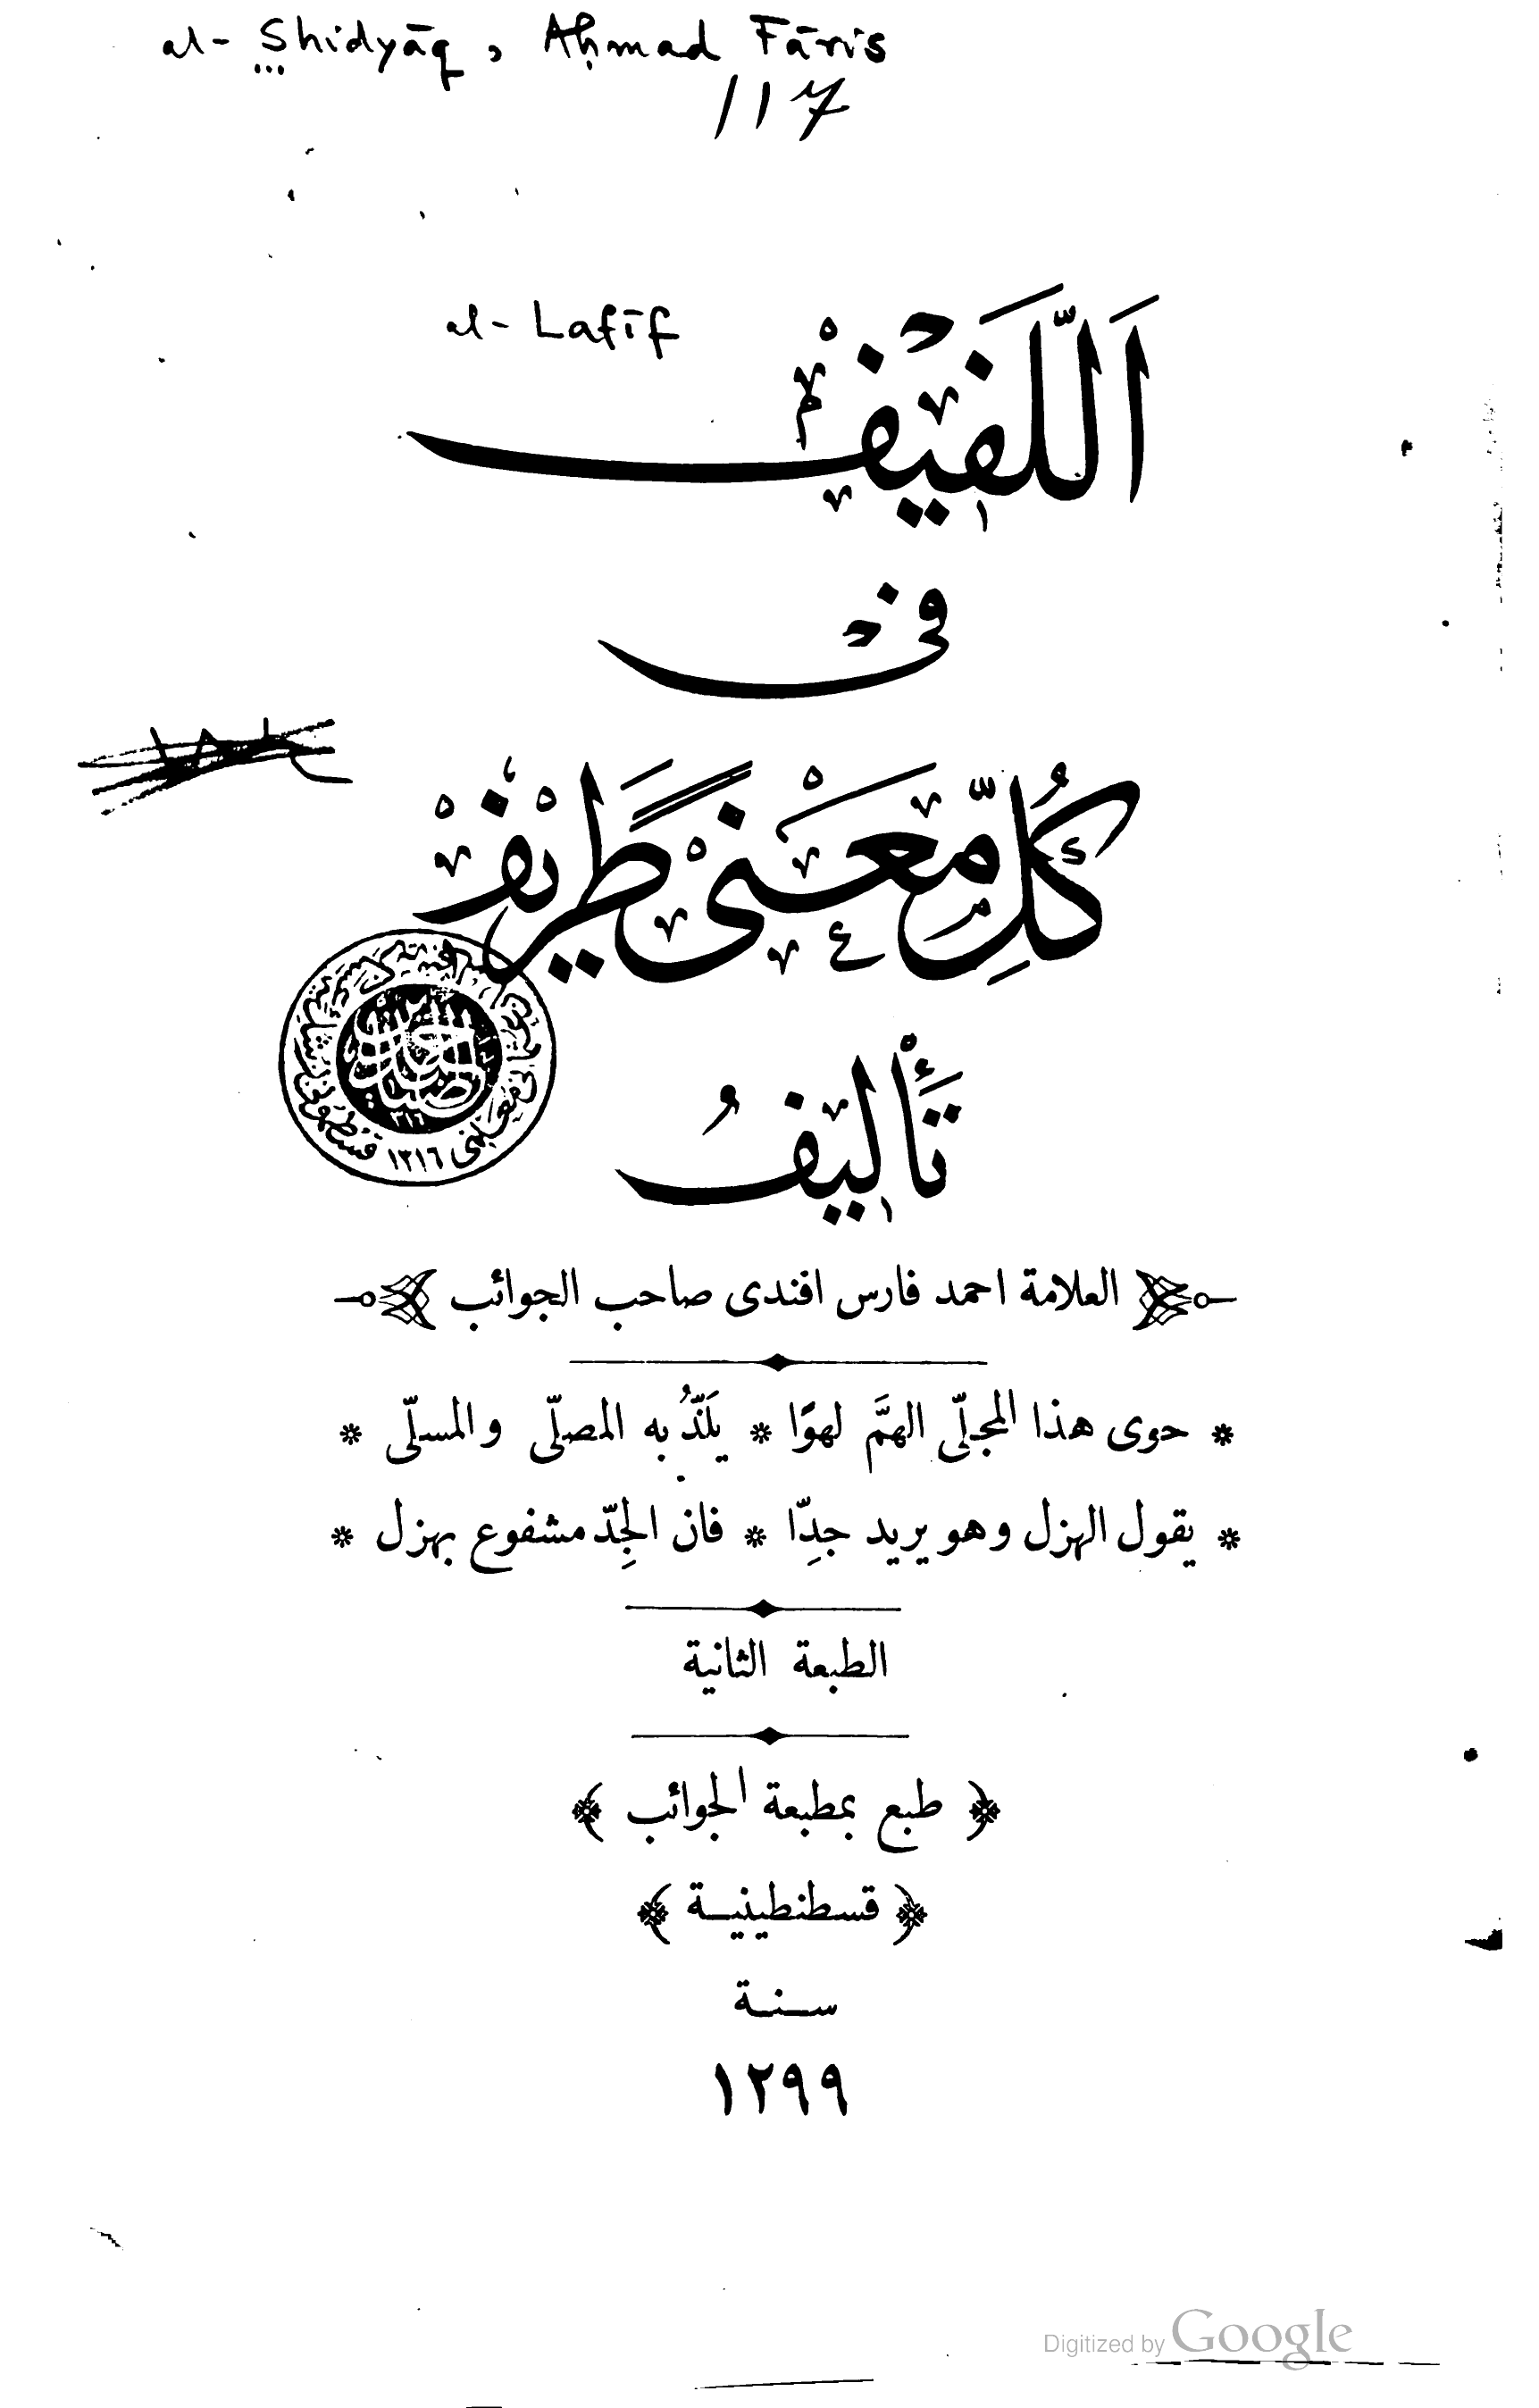 al-Shidyāq, Aḥmad Fāris
117
al-Lafīf
اَللَّفِيْفْ
فى
كُلِّ مَّعْنًى طَرِيْفْ
١٣١٦
تَأْلِيفُ
العلامة احمد فارس افندى صاحب الجوائب
* حوى هذا المجلّى الهمَّ لهوًا * يَلَذُّ به المصلّى والمسلّى *
* يقول الهزل وهو يريد جدِّا * فان الجِدّ مشفوع بهزل *
الطبعة الثانية
﴿ طبع بمطبعة الجوائب ﴾
﴿ قسطنطينية ﴾
سنة
١٢٩٩
Digitized by Google